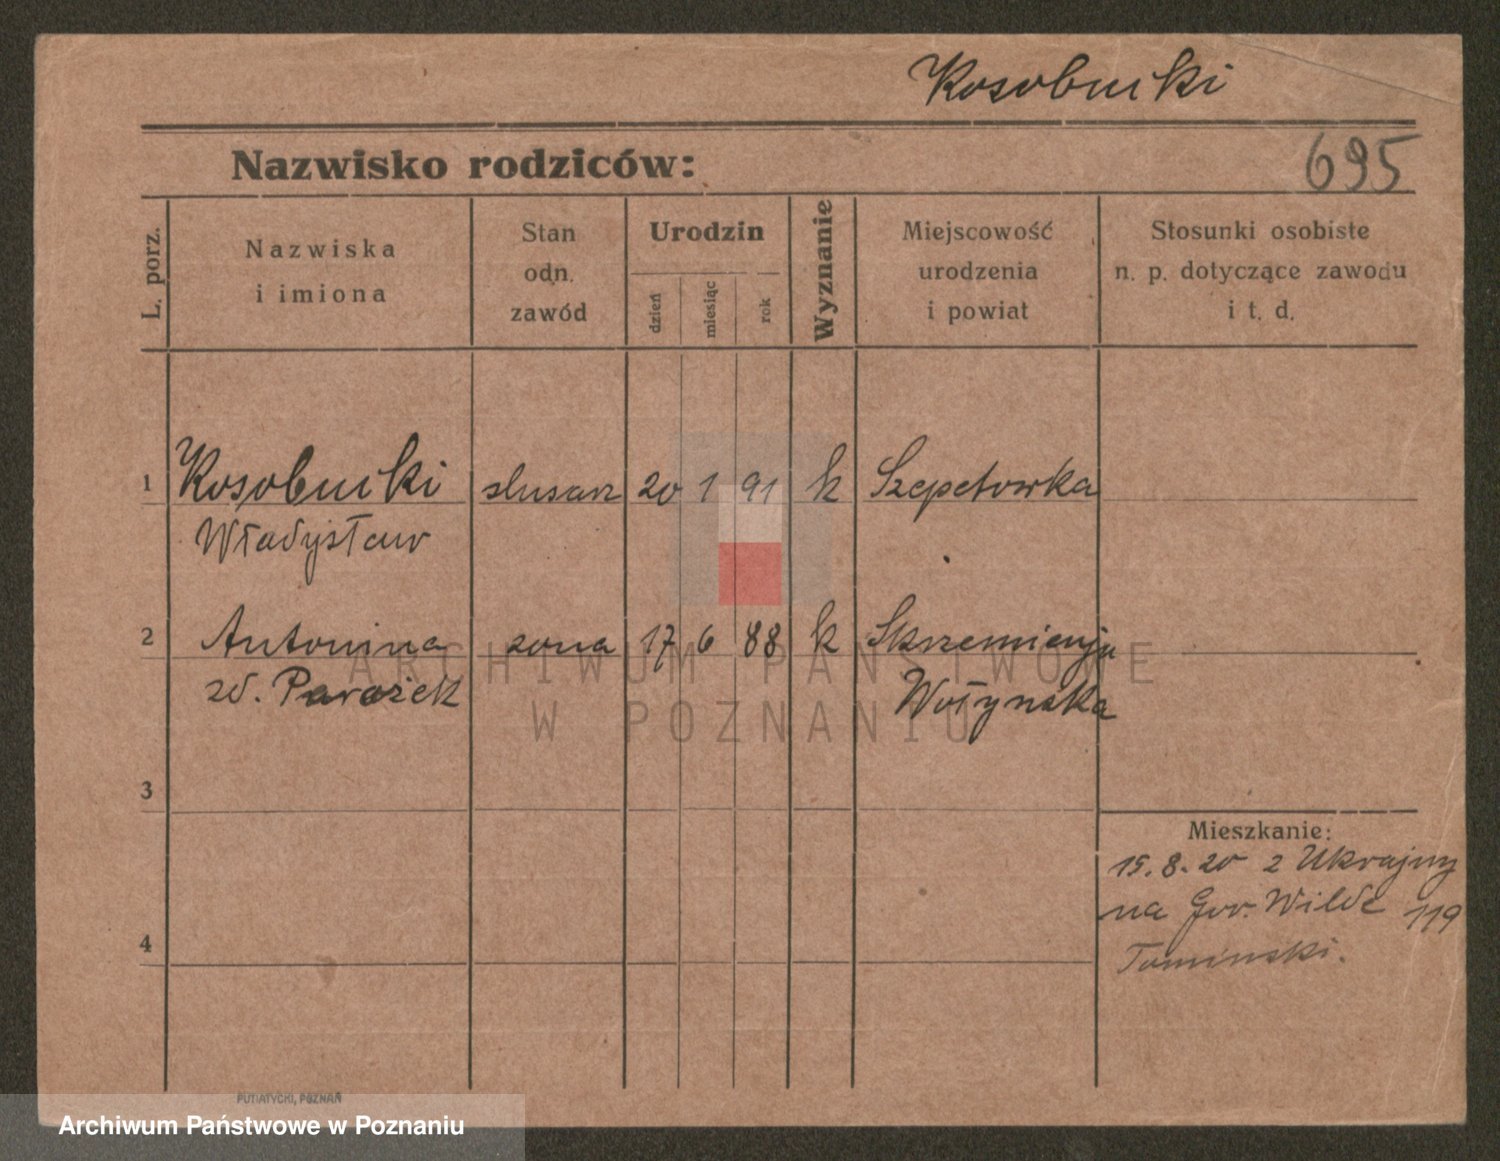 Kosobucki
Nazwisko rodziców:
695
L. porz.
Nazwiska
i imiona
Stan
odn.
zawód
Urodzin
dzień
miesiąc
rok
Wyznanie
Miejscowość
urodzenia
i powiat
Stosunki osobiste
n. p. dotyczące zawodu
i t. d.
1 Kosobucki slusarz 20 1 91 k Szepetowka
Władysław
2 Antonina zona 17 6 88 k
zd. Parożek
Wołynska
3
4
Mieszkanie:
15.8.20 z Ukrajny
na Gor. Wilde 119
Tominski.
ARCHIWUM PAŃSTWOWE
W POZNANIU
PUTIATYCKI, POZNAŃ
Archiwum Państwowe w Poznaniu